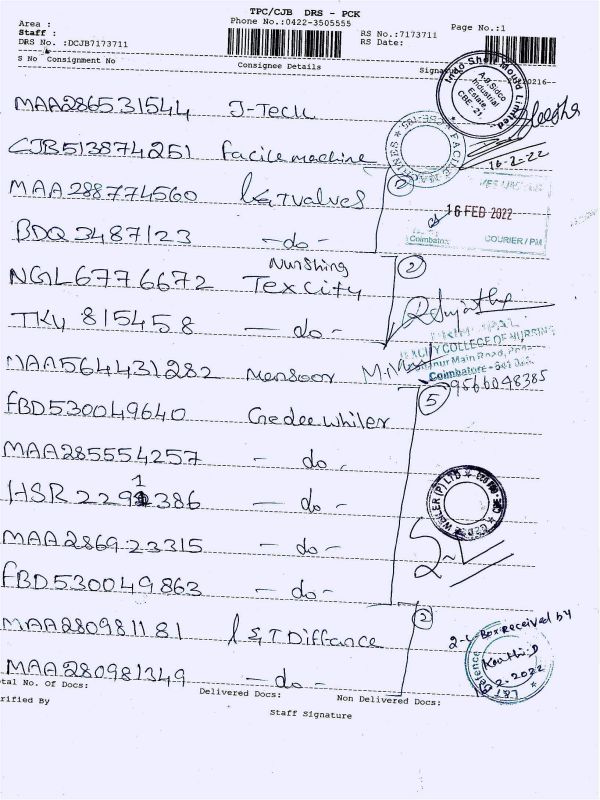 TPC/CJB DRS - PCK
Area :
Phone No.:0422-3505555
Page No.:1
Staff :
RS No.:7173711
DRS No. :DCJB7173711
RS Date:
S No Consignment No
Consignee Details
MAA286531544 J-Teck
CJB513874251 facile machine
16-2-22
MAA288774560 L&T valves
16 FEB 2022
BDQ 3487123 -do-
Coimbatore COURIER / PM
Nurshing
NGL6776672 Texcity
2
TKY 815458 - do -
COLLEGE OF NURSING
Main Road
Coimbatore
MAA564431282 Mansoor
9566048385
FBD530049640 Gedee whiler
5
MAA2855554257 - do -
HSR 2291386 - do -
MAA286923315 - do -
FBD530049863 - do -
MAA280981181 L & T Diffance
2
2-C Box received by
MAA280981349 - do -
2-2022
Total No. of Docs:
Delivered Docs:
Non Delivered Docs:
Verified By
Staff Signature